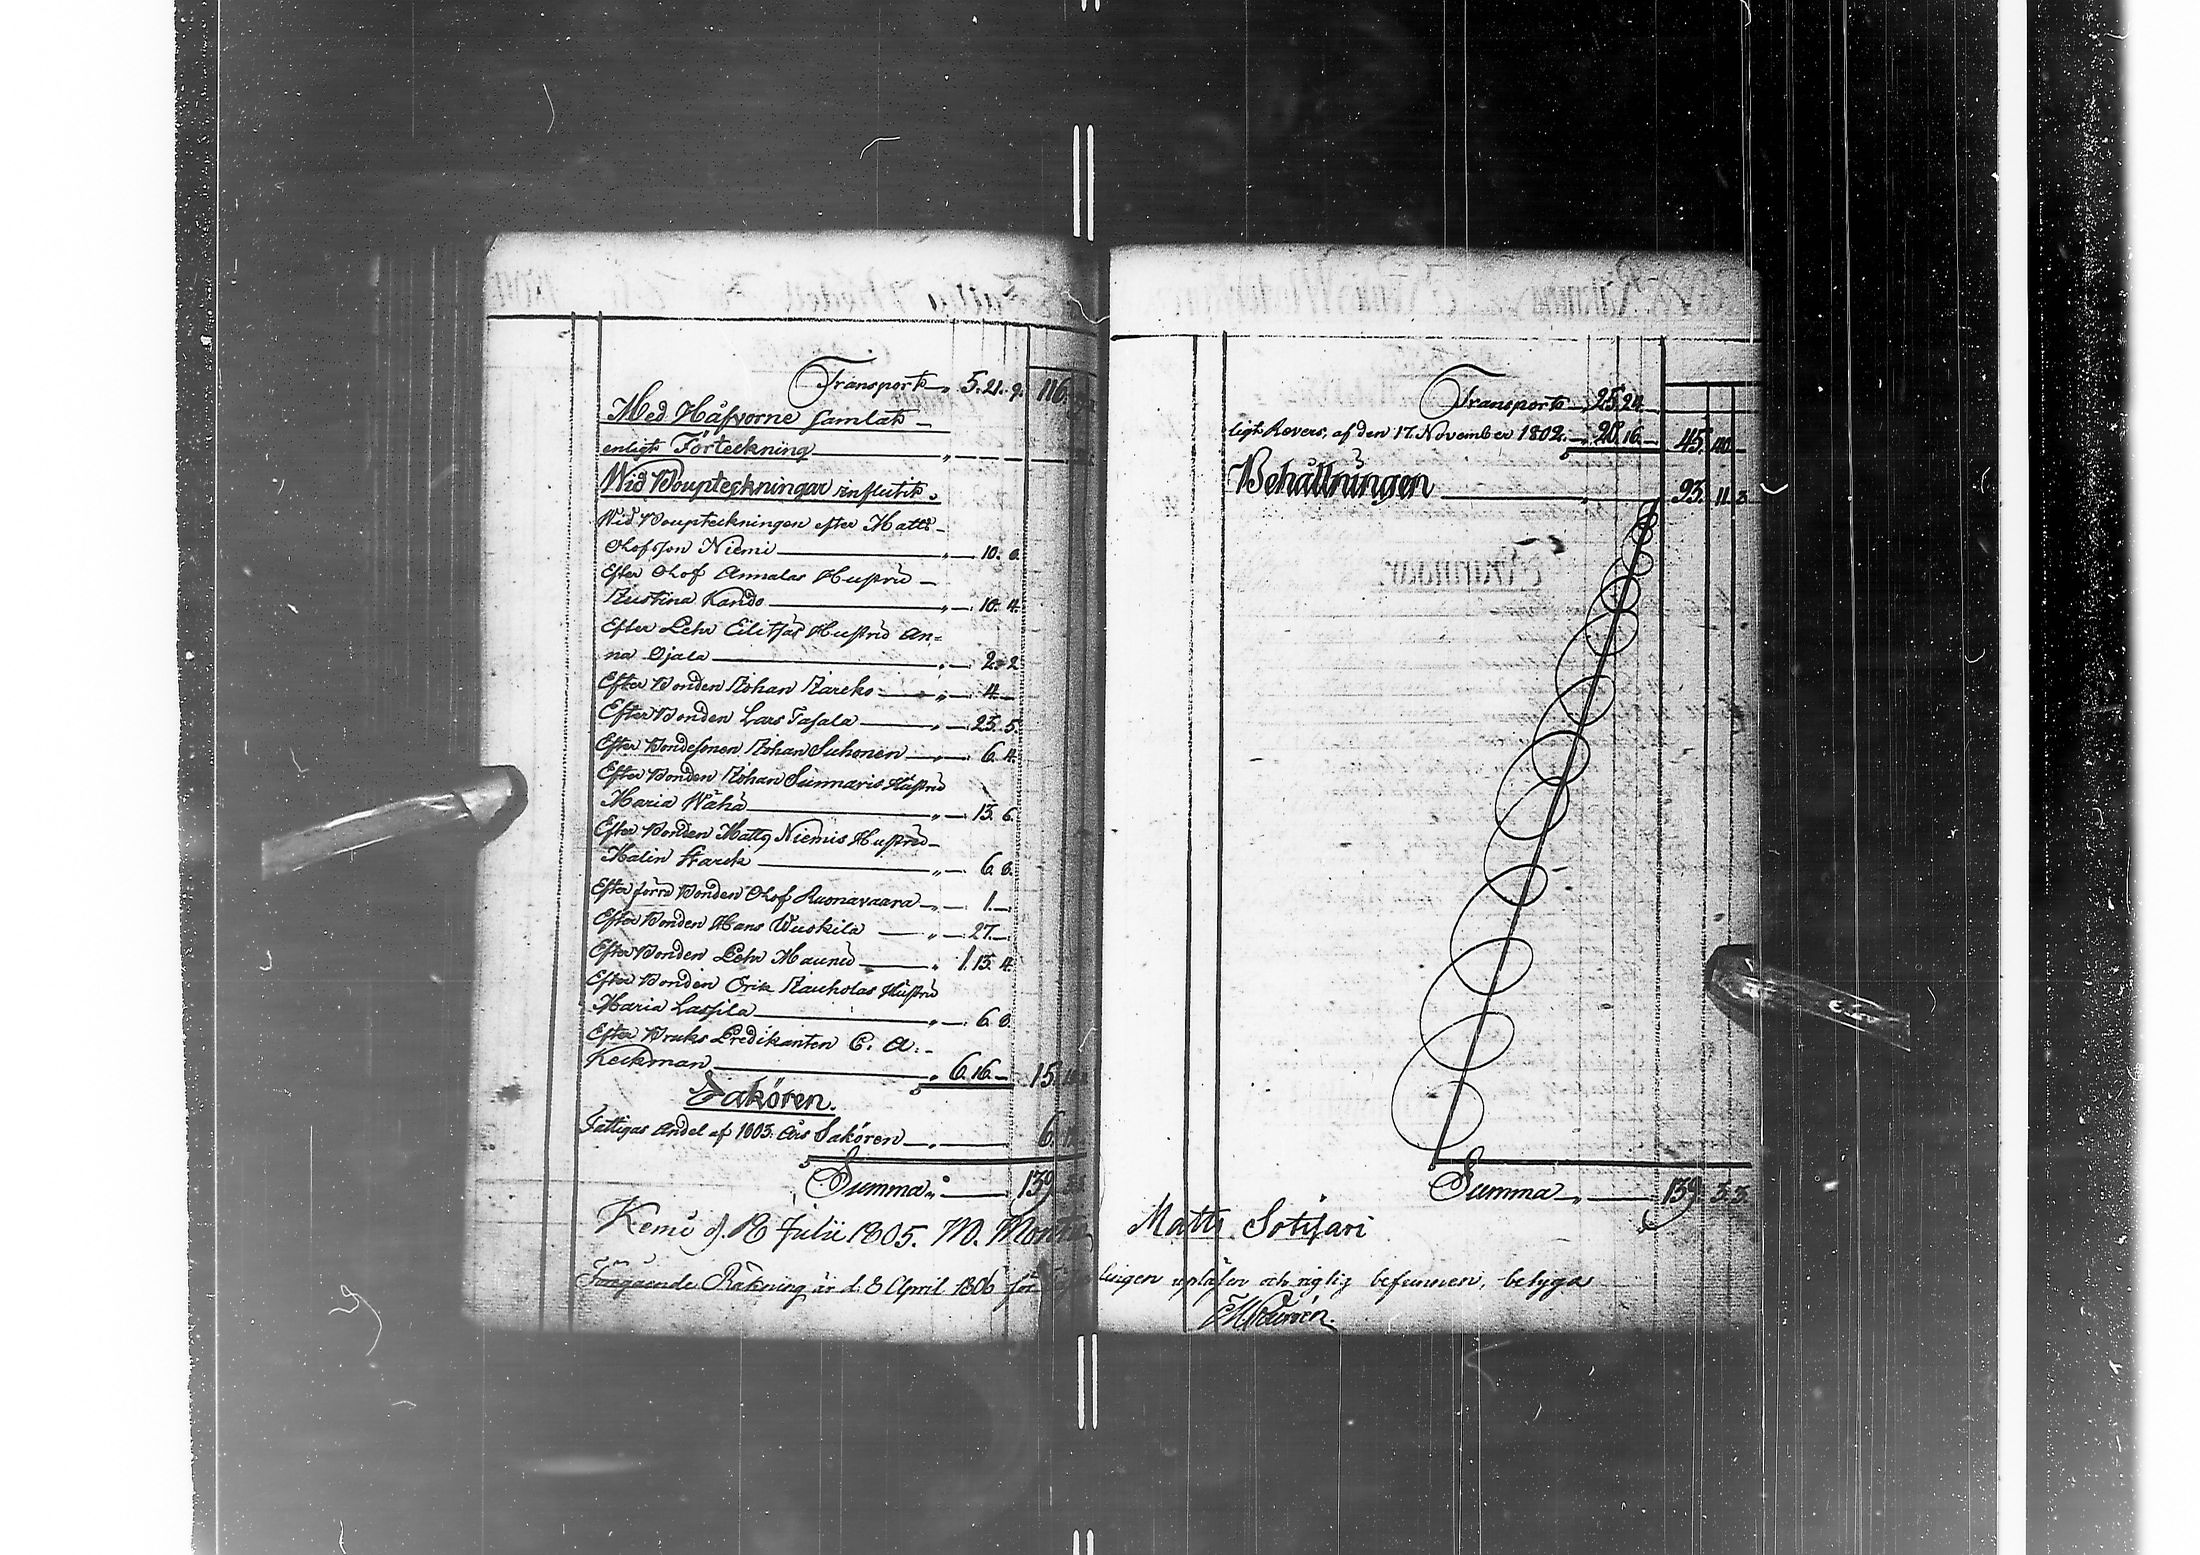 Transport „ 5. 21. 9. 116.
Med Håfvorne samlat
enligt Förteckning
Wid Boupteckningar influtit.
Wid Boupteckningen efter Matts
Olofsson Niemi „ — 10. 8.
Efter Olof Annalas Hustru
Kustina Kando „ — 10. 4.
Efter Pehr Eilitjäs Hustru An-
na Ojala „ — 2. 2.
Efter Bonden Johan „ — 4. —
Efter Bonden Lars Tasala „ — 23. 5.
Efter Bondesonen Johan Suhonen „ — 6. 4.
Efter Bonden Johan Sunnaris Hustru
Maria Wähä „ — 13. 6.
Efter Bonden Matts Niemis Hustru
Malin Starck „ — 6. 8.
Efter förra Bonden Olof Ruonavaara „ — 1. —
Efter Bonden Hans Wuskila „ — 27. —
Efter Bonden Pehr Maunu „ 1. 13. 4.
Efter Bonden Erik Kauholas Hustru
Maria Lassila „ — 6. 8.
Efter Bruks Predikanten C. A.
Keckman „ 6. 16. — 15.
Sakören.
Fattigas andel af 1803. Års Sakören „ 6.
Summa „ 139
Kemi d. 18 Julii 1805. M.
Föregående Räkning är d. 8 April 1806 för
Transport 25. 24.
ligt Revers, af den 17. November 1802. „ 20. 16. — 45. 40. —
Behållningen 93. 11. 3.
Summa „ 139. 3. 3.
Matts Sotisari
uplä­sen och riglig befunnen, betygar